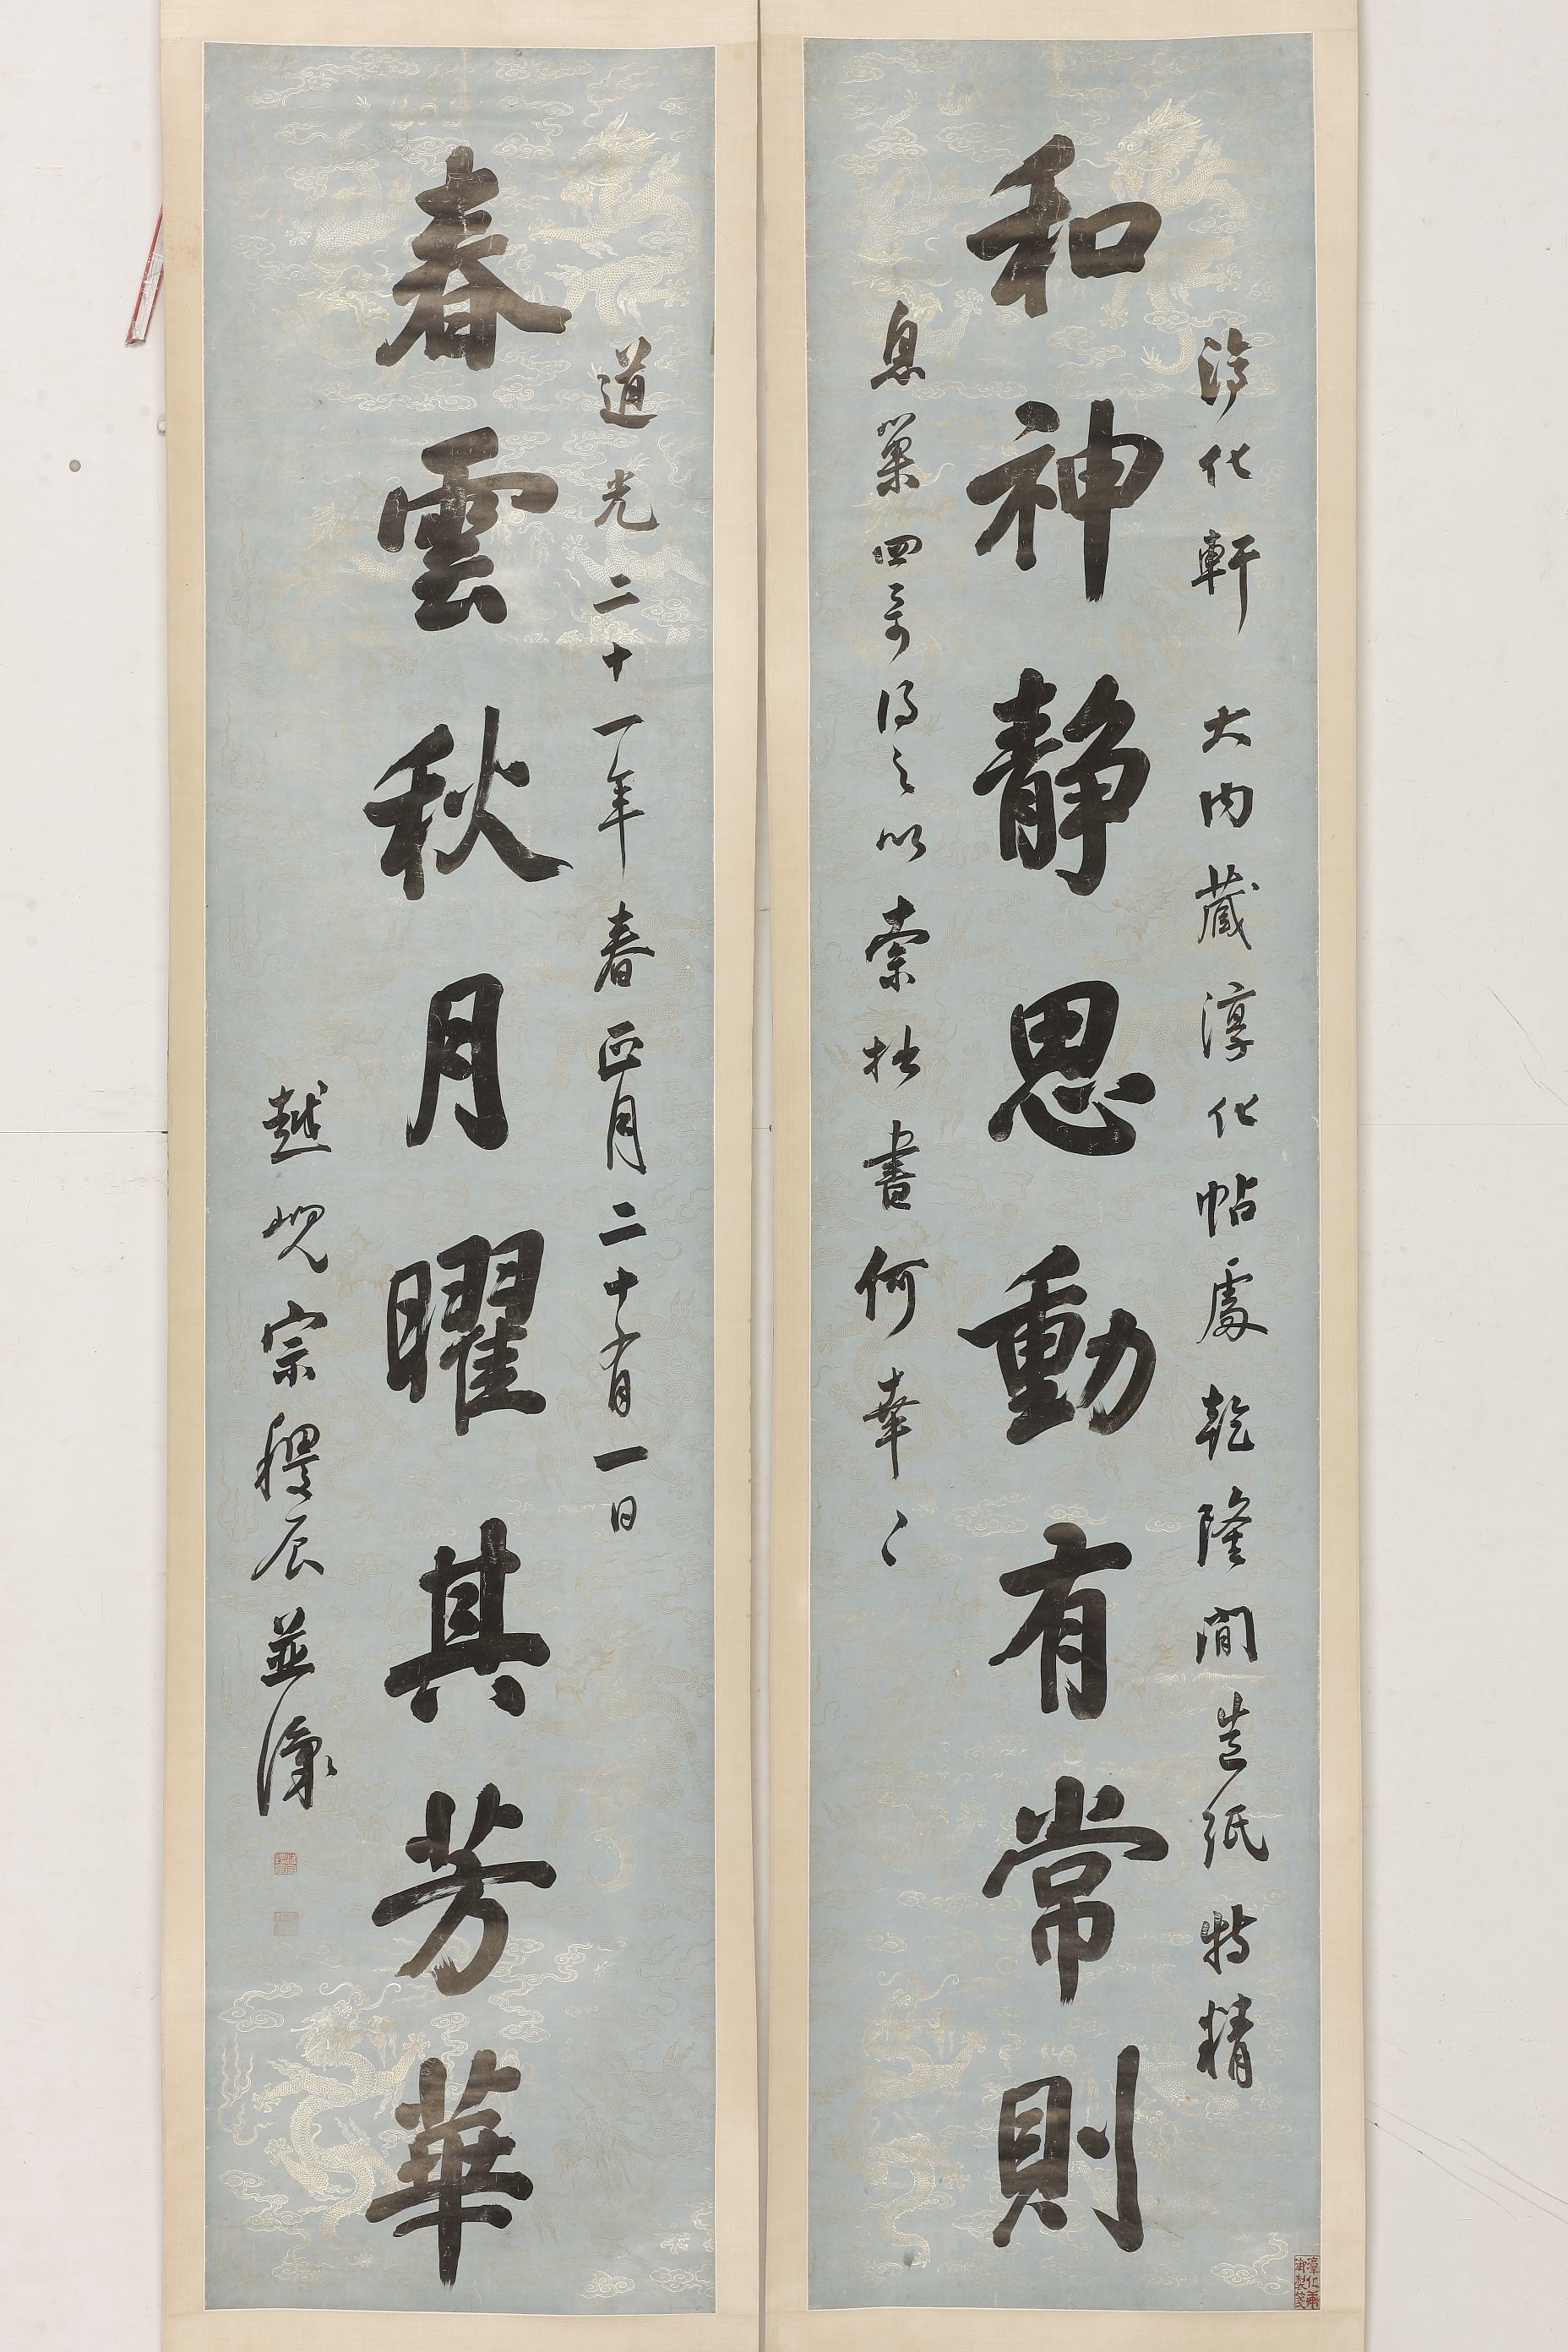 淳化軒　大內藏淳化帖處　乾隆間造紙特精
和神靜思動有常則
息巢四哥得之以索拙書何幸〻
道光二十一年春正月二十有一日
春雲秋月曜其芳華
越峴宗稷辰並識
淳化軒
御製箋